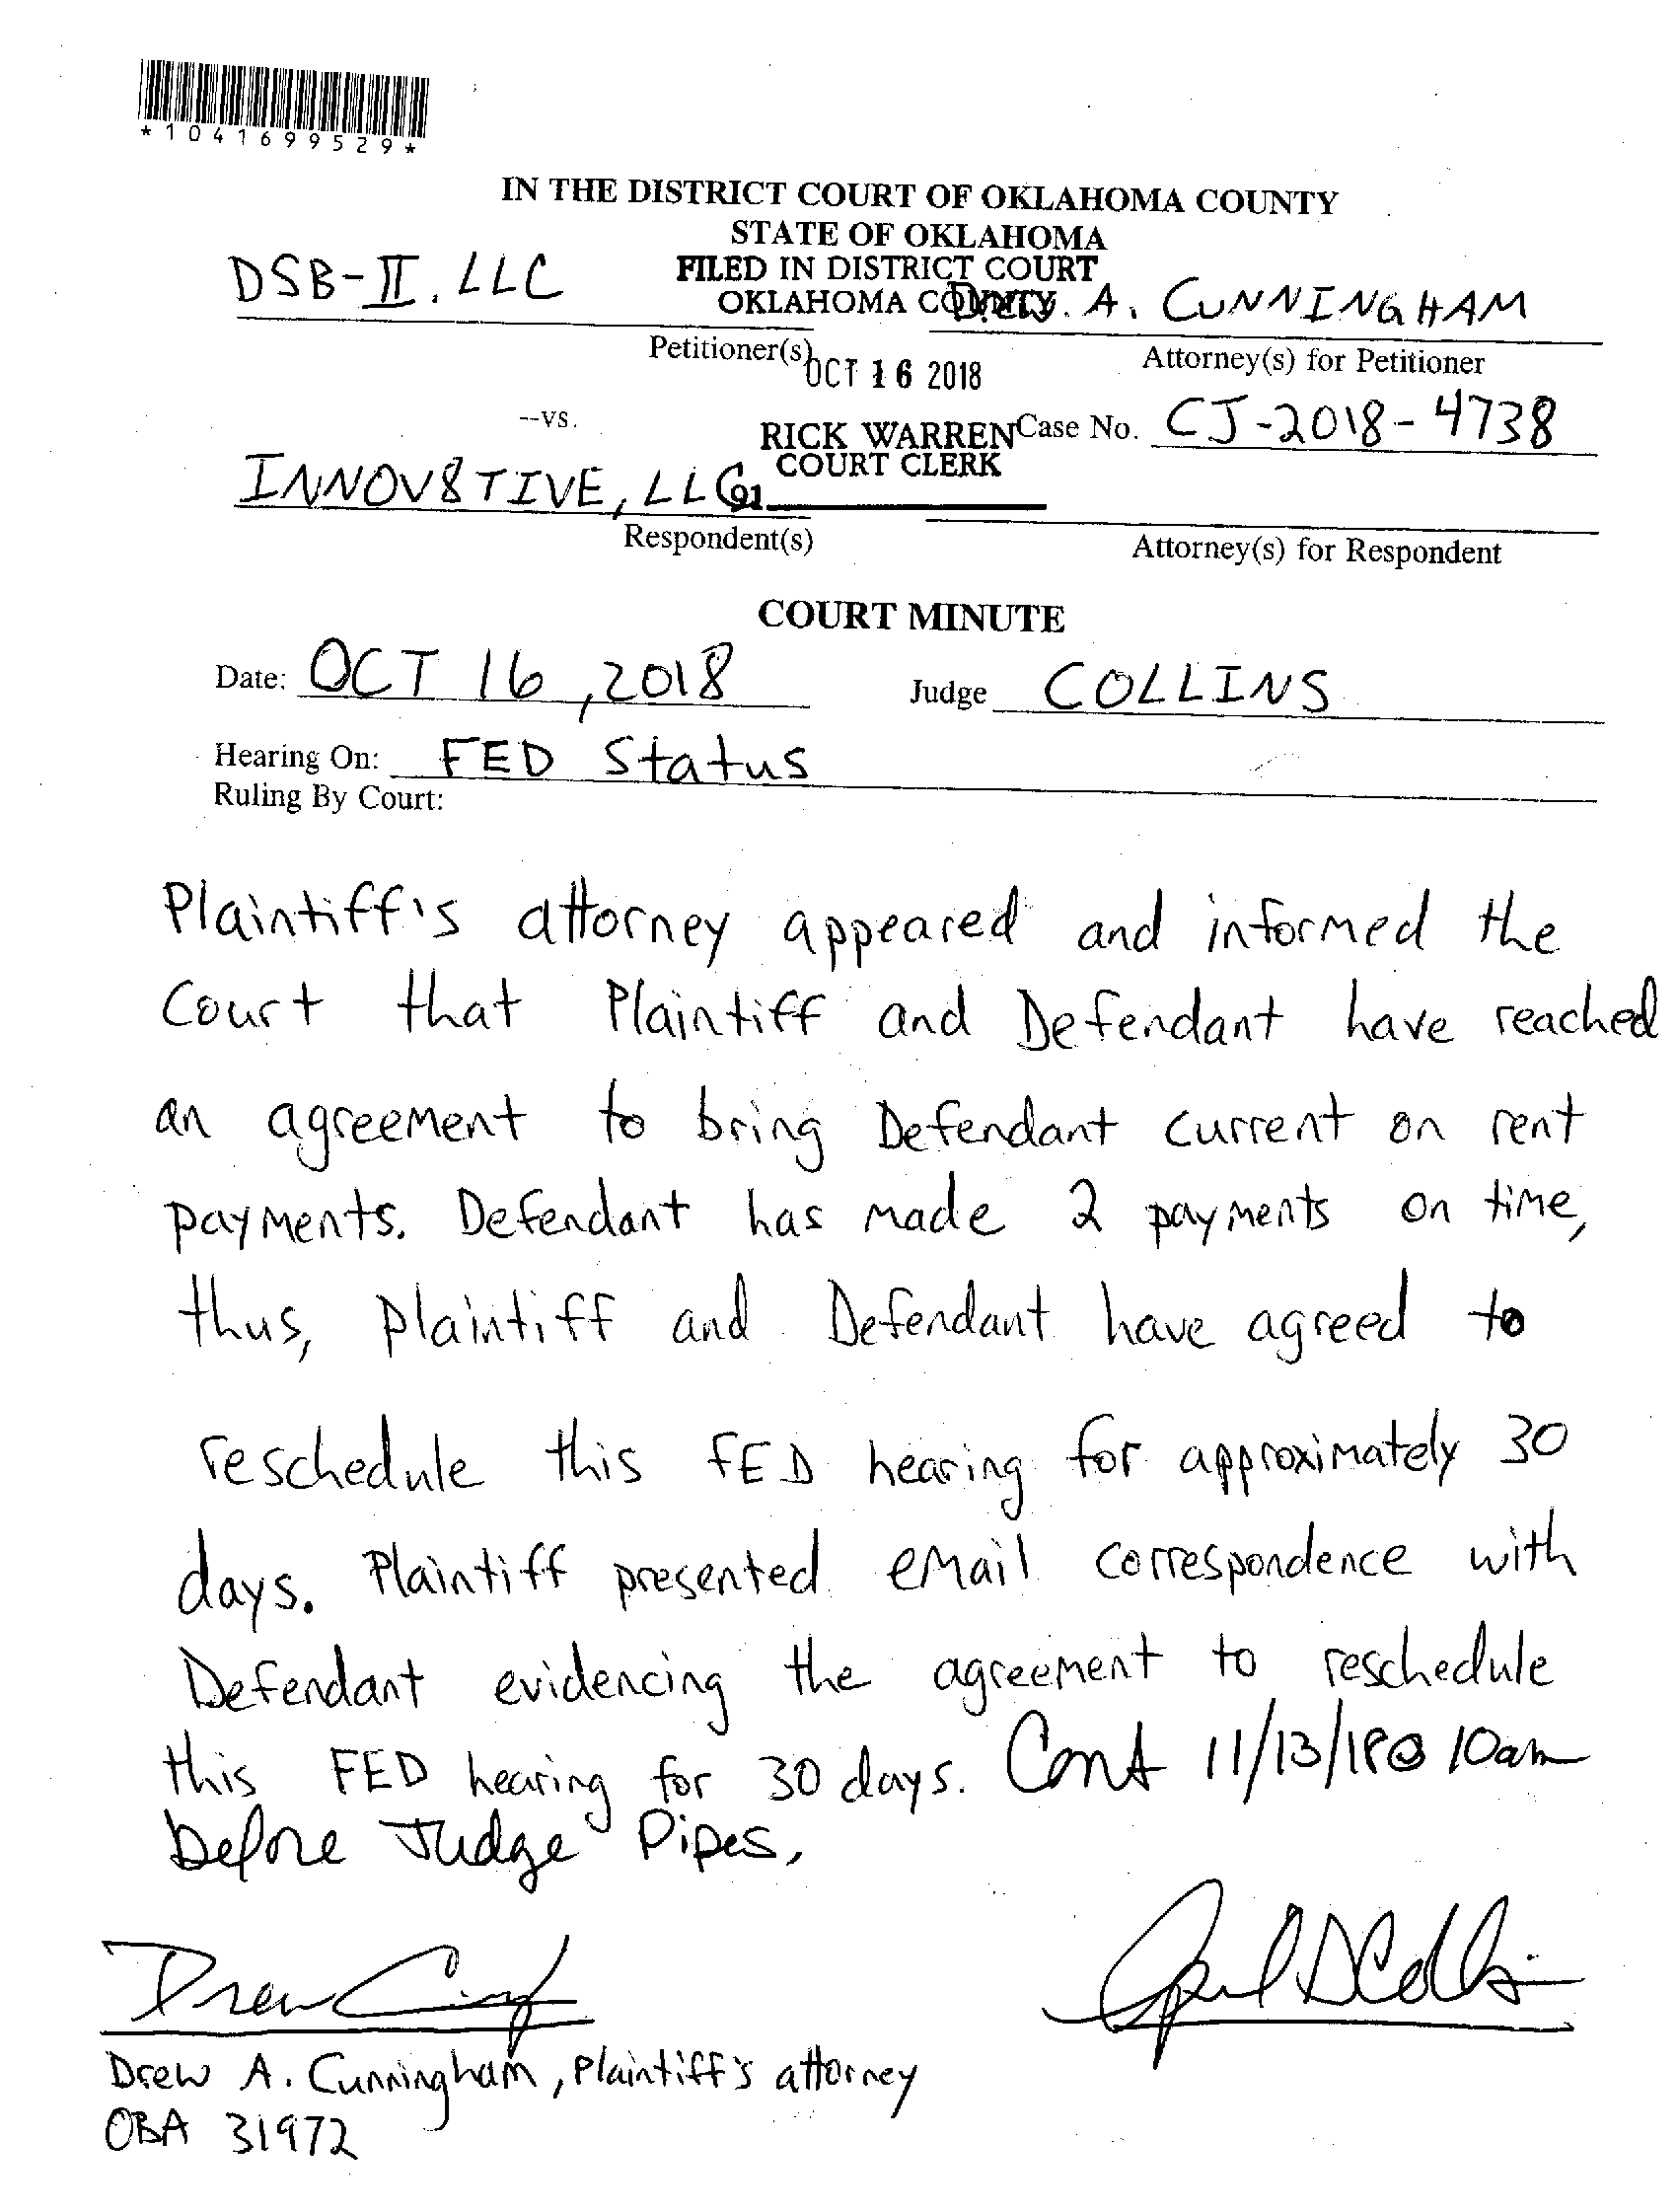 *1041699529*
IN THE DISTRICT COURT OF OKLAHOMA COUNTY
STATE OF OKLAHOMA
FILED IN DISTRICT COURT
OKLAHOMA COUNTY
DSB-II, LLC
A. CUNNINGHAM
Petitioner(s)
Attorney(s) for Petitioner
OCT 16 2018
--vs.
RICK WARREN
COURT CLERK
Case No. CJ-2018-4738
INNOV8TIVE, LLC
91
Respondent(s)
Attorney(s) for Respondent
COURT MINUTE
Date: OCT 16, 2018 Judge COLLINS
Hearing On: FED Status
Ruling By Court:
Plaintiff's attorney appeared and informed the
Court that Plaintiff and Defendant have reached
an agreement to bring Defendant current on rent
payments. Defendant has made 2 payments on time,
thus, Plaintiff and Defendant have agreed to
reschedule this FED hearing for approximately 30
days. Plaintiff presented email correspondence with
Defendant evidencing the agreement to reschedule
this FED hearing for 30 days. Cont 11/13/18 @ 10am
before Judge Pipes.
Drew A. Cunningham, Plaintiff's attorney
OBA 31972